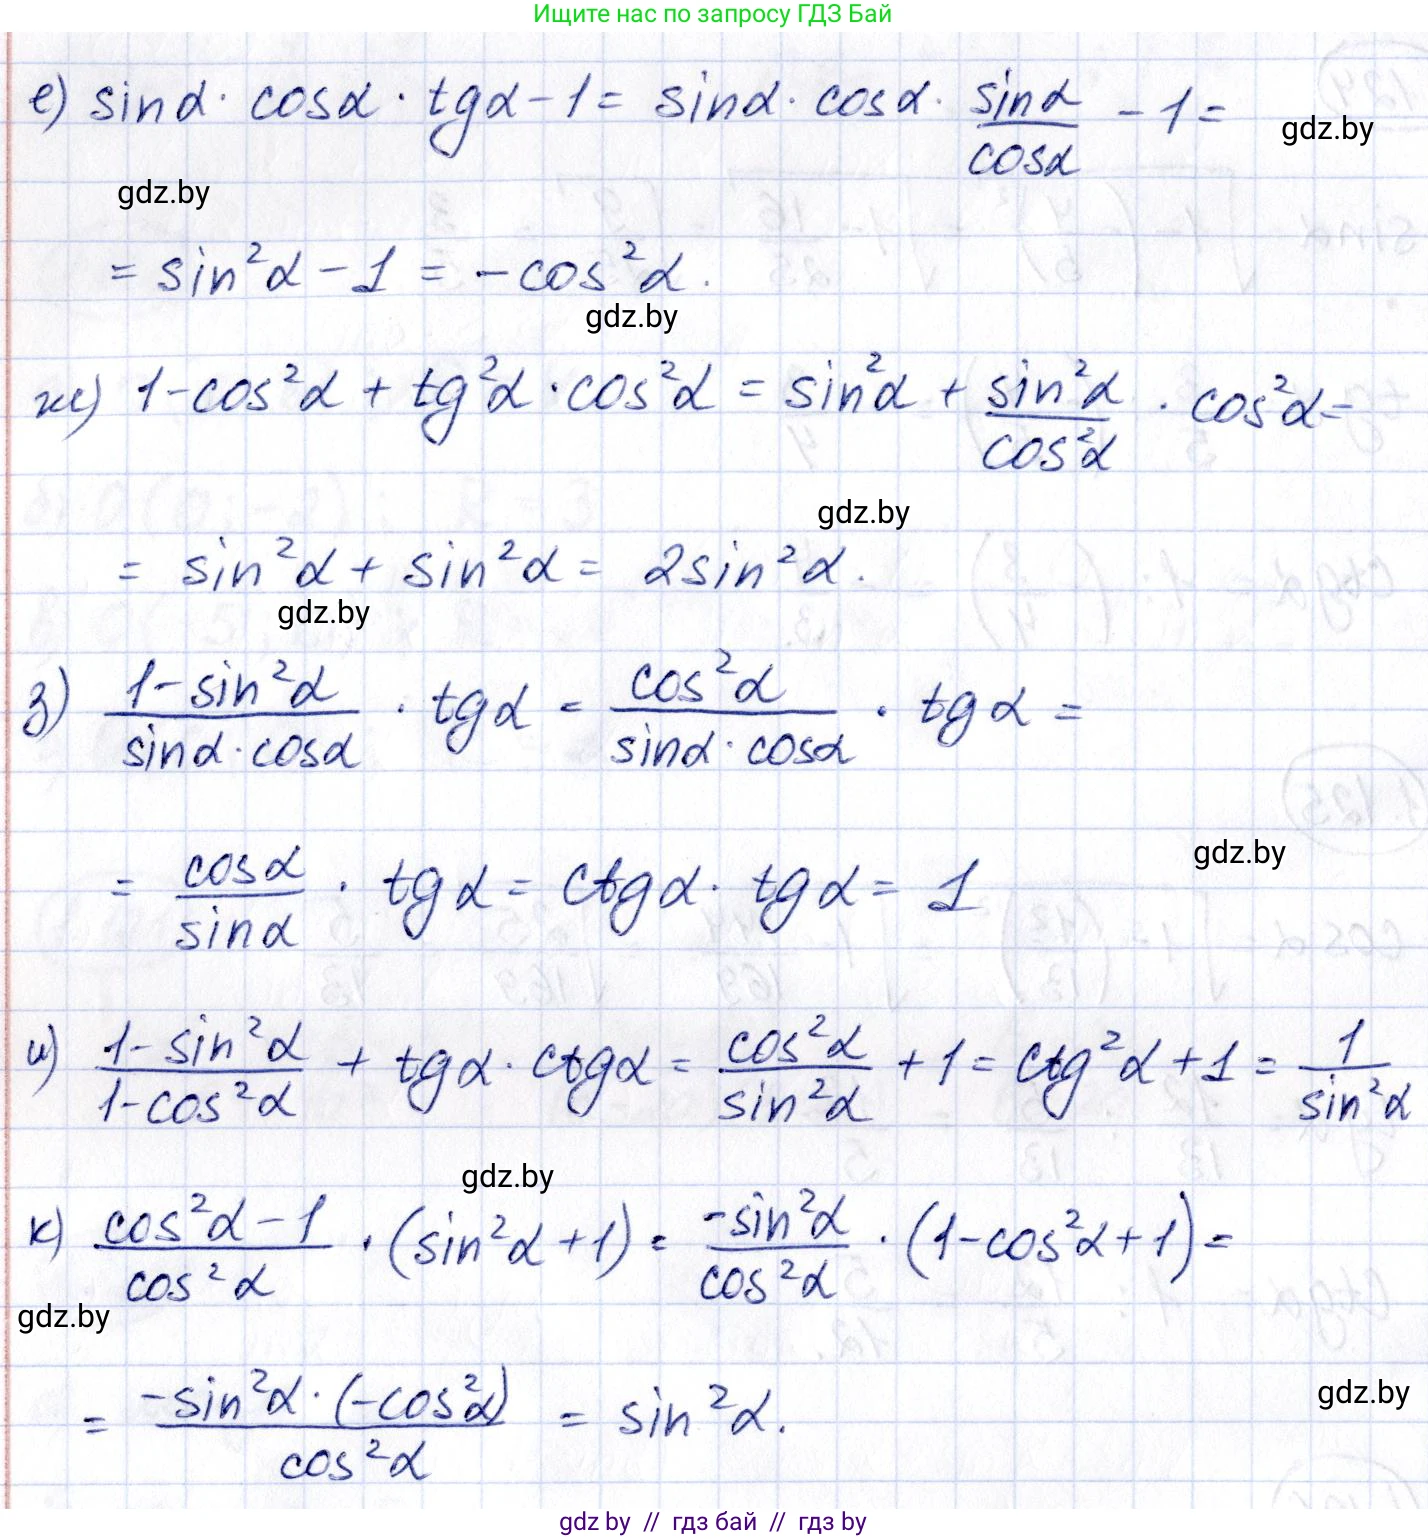 Ищите нас по запросу ГДЗ Бай
е) sinα · cosα · tgα - 1 = sinα · cosα · sinα/cosα - 1 =
gdz.by
gdz.by
= sin²α - 1 = -cos²α.
gdz.by
ж) 1 - cos²α + tg²α · cos²α = sin²α + sin²α/cos²α · cos²α =
gdz.by
= sin²α + sin²α = 2sin²α.
gdz.by
з) (1 - sin²α)/(sinα · cosα) · tgα = cos²α/(sinα · cosα) · tgα =
gdz.by
= cosα/sinα · tgα = ctgα · tgα = 1
и) (1 - sin²α)/(1 - cos²α) + tgα · ctgα = cos²α/sin²α + 1 = ctg²α + 1 = 1/sin²α
gdz.by
к) (cos²α - 1)/cos²α · (sin²α + 1) = -sin²α/cos²α · (1 - cos²α + 1) =
gdz.by
gdz.by
= -sin²α · (-cos²α)/cos²α = sin²α.
gdz by // гдз бай // гдз by